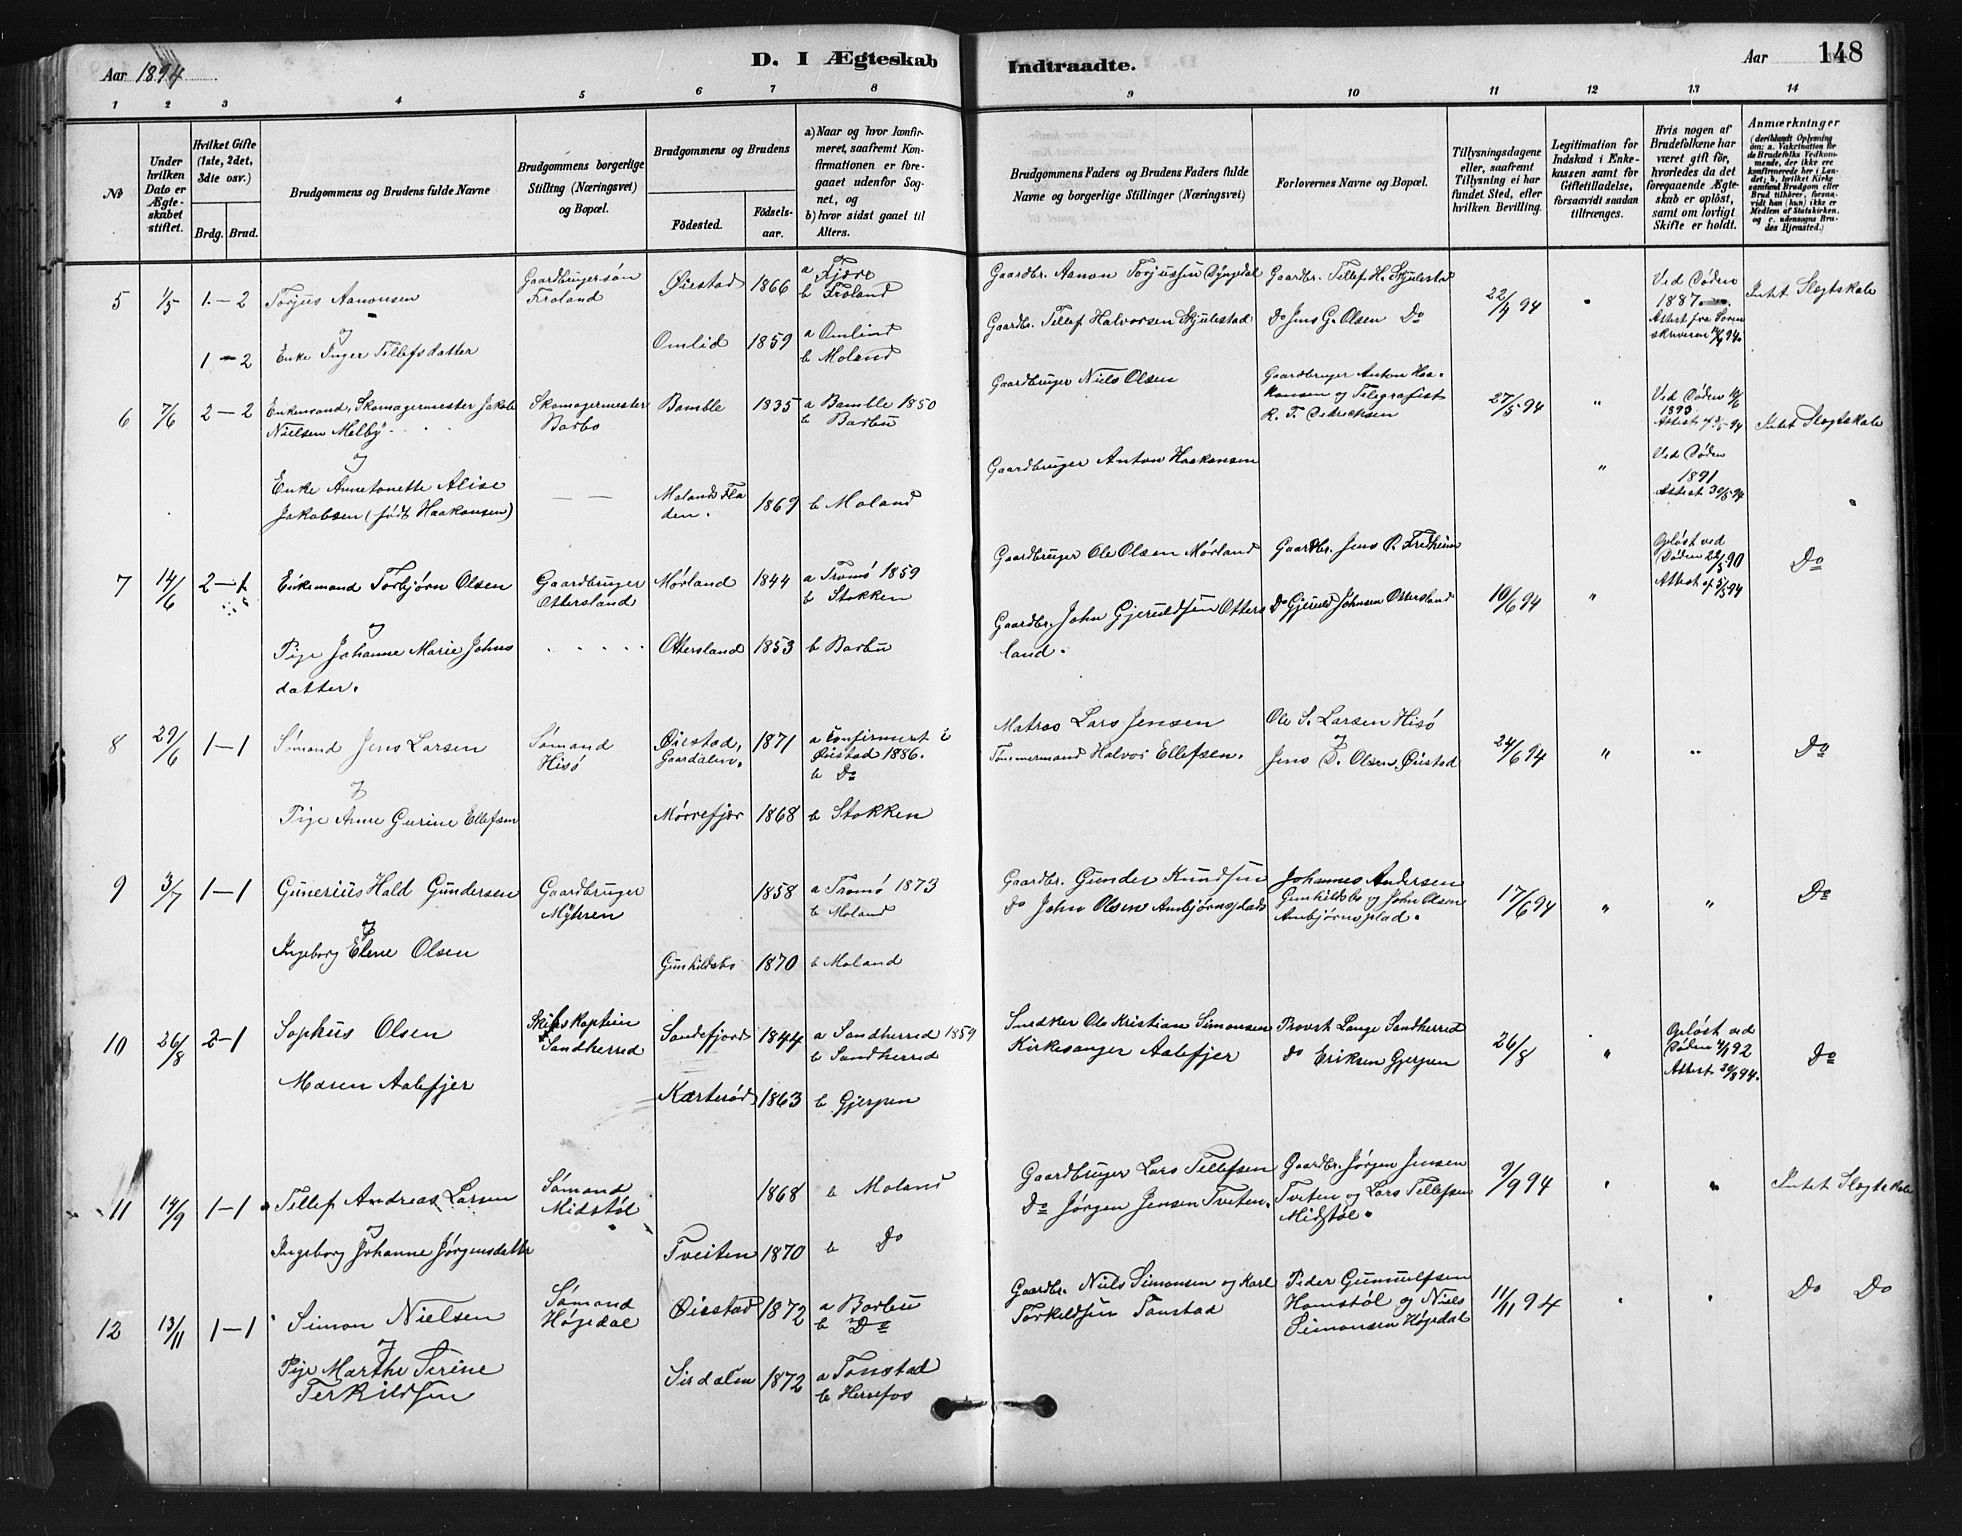 Aar 1894
D. I Ægteskab
Indtraadte.
Aar
148
1 2 3 4 5 6 7 8 9 10 11 12 13 14
No
Under hvilken Dato er Ægteskabet stiftet.
Hvilket Gifte (1ste, 2det, 3die osv.)
Brdg. Brud.
Brudgommens og Brudens fulde Navne
Brudgommens borgerlige Stilling (Næringsvei) og Bopæl.
Brudgommens og Brudens
Fødested.
Fødselsaar.
a) Naar og hvor konfirmeret, saafremt Konfirmationen er foregaaet udenfor Sognet, og
b) hvor sidst gaaet til Alters.
Brudgommens Faders og Brudens Faders fulde Navne og borgerlige Stillinger (Næringsvei)
Forlovernes Navne og Bopæl.
Tillysningsdagene eller, saafremt Tillysning ei har fundet Sted, efter hvilken Bevilling.
Legitimation for Indskud i Enkekassen samt for Giftetilladelse, forsaavidt saadan tiltrænges.
Hvis nogen af Brudefolkene har været gift før, hvorledes da det foregaaende Ægteskab er opløst, samt om lovligt Skifte er holdt.
Anmærkninger
(deriblandt Oplysning om: a. Vakcination for de Brudefolks Vedkommende, der ikke ere konfirmerede her i Landet; b. hvilket Kirkesamfund Brudgom eller Brud tilhører, forsaavidt han (hun) ikke er Medlem af Statskirken, og c. udensogns Brudes Hjemsted.)
5 1/5 1 - 2 Torjus Aanonsen
Gaardbrugersøn Froland
Øiestad 1866 a Fjære
b Froland
Gaardbr. Aanon Torjussen Dyngedal
Gaardbr. Tellef H. Skjulestad
22/4 94
Ved Døden 1887. Attest fra Sorenskriveren 94
Intet Slægtskab
og
1 - 2 Enke Inger Tellefsdatter
Omlid 1859 a Omlind
b Moland
Gaardbr. Tellef Halvorsen Skjulestad
Do Jens G. Olsen Do
6 7/6 2 - 2 Enkemand, Skomagermester Jakob
Nielsen Melby
Skomagermester Barbo
Bamble 1835 a Bamble 1850
b Barbu
Gaardbruger Niels Olsen
Gaardbruger Anton Haakonsen og Telegrafist R. F. Didricksen
27/5 94 "
Ved Døden 1893
Intet Slægtskab
og
Enke Annetonette Alise
Jakobsen (født Haakonsen)
Molands Fladen. 1869 b Moland
Gaardbruger Anton Haakonsen
"
Ved Døden
1891
Attest 30/5 94
7 14/6 2 - 1 Enkemand Torbjørn Olsen
Gaardbruger Ottersland
Mørland 1844 a Tromø 1859
b Stokken
Gaardbruger Ole Olsen Mørland
Gaardbr. Jens P. Fredheim
10/6 94 "
Opløst ved Døden 90
Attest af 5/5 94
Do
og
Pige Johanne Marie Johnsdatter.
Ottersland 1853 b Barbu
Gaardbr. John Gjeruldsen Ottersland.
Do Gjeruld Johnsen Ottersland
8 29/6 1 - 1 Sømand Jens Larsen
Sømand Hisø
Øiestad, Gaardalen. 1871 a Confirmert i Øiestad 1886.
b Do
Matros Lars Jensen
Ole S. Larsen Hisø
og
24/6 94 " "
Do
og
Pige Anne Gurine Ellefsen
Mørrefjær 1868 b Stokken
Tømmermand Halvor Ellefsen.
Jens D. Olsen Øiestad
9 3/7 1 - 1 Gunerius Hald Gundersen
Gaardbruger Myhren
1858 a Tromø 1873
b Moland
Gaardbr. Gunder Knudsen
Do John Olsen Ambjørnsplads
Johannes Andersen Gunhildsbo og John Olsen Ambjørnsplad.
17/6 94 " "
Do
og
Ingeborg Elene Olsen
Gunhildsbo 1870 b Moland
10 26/8 2 - 1 Sophus Olsen
Skibskaptein Sandherred
Sandefjord 1844 a Sandherred 1859
b Sandherred
Snedker Ole Kristian Simonsen
Kirkesanger Aalefjer
Provst Lange Sandherred
Do Eriksen Gjerpen
26/8 "
Opløst ved Døden 92
Attest 20/8 94.
Do
Maren Aalefjer
Kærterød 1863 b Gjerpen
11 14/9 1 - 1 Tellef Andreas Larsen
Sømand Midstøl
1868 b Moland
Gaardbruger Lars Tellefsen
Do Jørgen Jensen Tveten.
Gaardbr. Jørgen Jensen Tveten og Lars Tellefsen Midstøl.
9/9 94
Intet Slægtskab
og
Ingeborg Johanne Jørgensdatter
Tveiten 1870 b Do
12 13/11 1 - 1 Simon Nielsen
Sømand Høgedal
Øiestad 1872 a Barbu
b Do
Gaardbr. Niels Simonsen og Karl
Torkildsen Tonstad
Peder Gunnulfsen Homstøl og Niels Simonsen Høgedal
11/11 94
Do Do
og
Pige Marthe Serine
Terkildsen
Sirdalen 1872 a Tonstad
b Herrefos